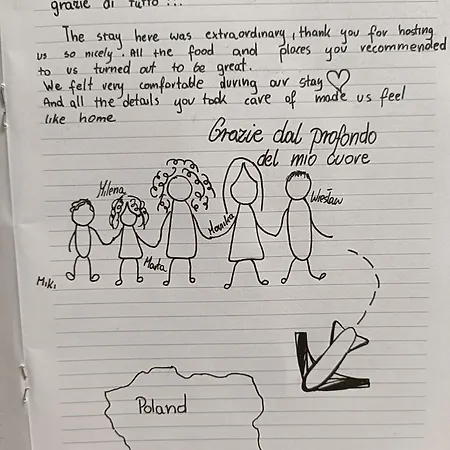 grazie di tutto !!!
The stay here was extraordinary, thank you for hosting
us so nicely. All the food and places you recommended
to us turned out to be great.
We felt very comfortable during our stay
And all the details you took care of made us feel
like home
Grazie dal profondo
del mio cuore
Milena
Wiesław
Monika
Marta
Miki
Poland